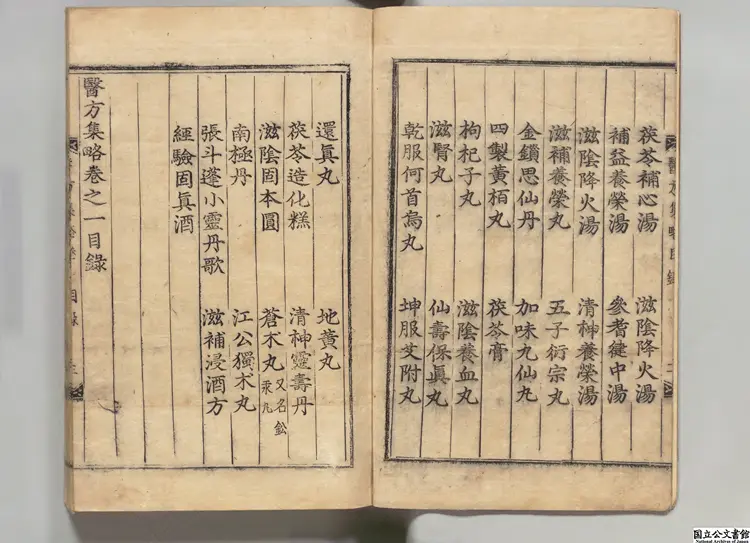 茯苓補心湯 滋陰降火湯
補益養榮湯 參耆健中湯
滋陰降火湯 清神養榮湯
滋補養榮丸 五子衍宗丸
金鎖思仙丹 加味九仙丸
四製黃栢丸 茯苓膏
枸杞子丸 滋陰養血丸
滋腎丸 仙壽保眞丸
乾服何首烏丸 坤服艾附丸
還眞丸 地黃丸
茯苓造化糕 清神靈壽丹
滋陰固本圓 蒼朮丸 又名鈆汞丸
南極丹 江公獨朮丸
張斗蓬小靈丹歌 滋補浸酒方
經驗固眞酒
醫方集略卷之一目錄
国立公文書館
National Archives of Japan